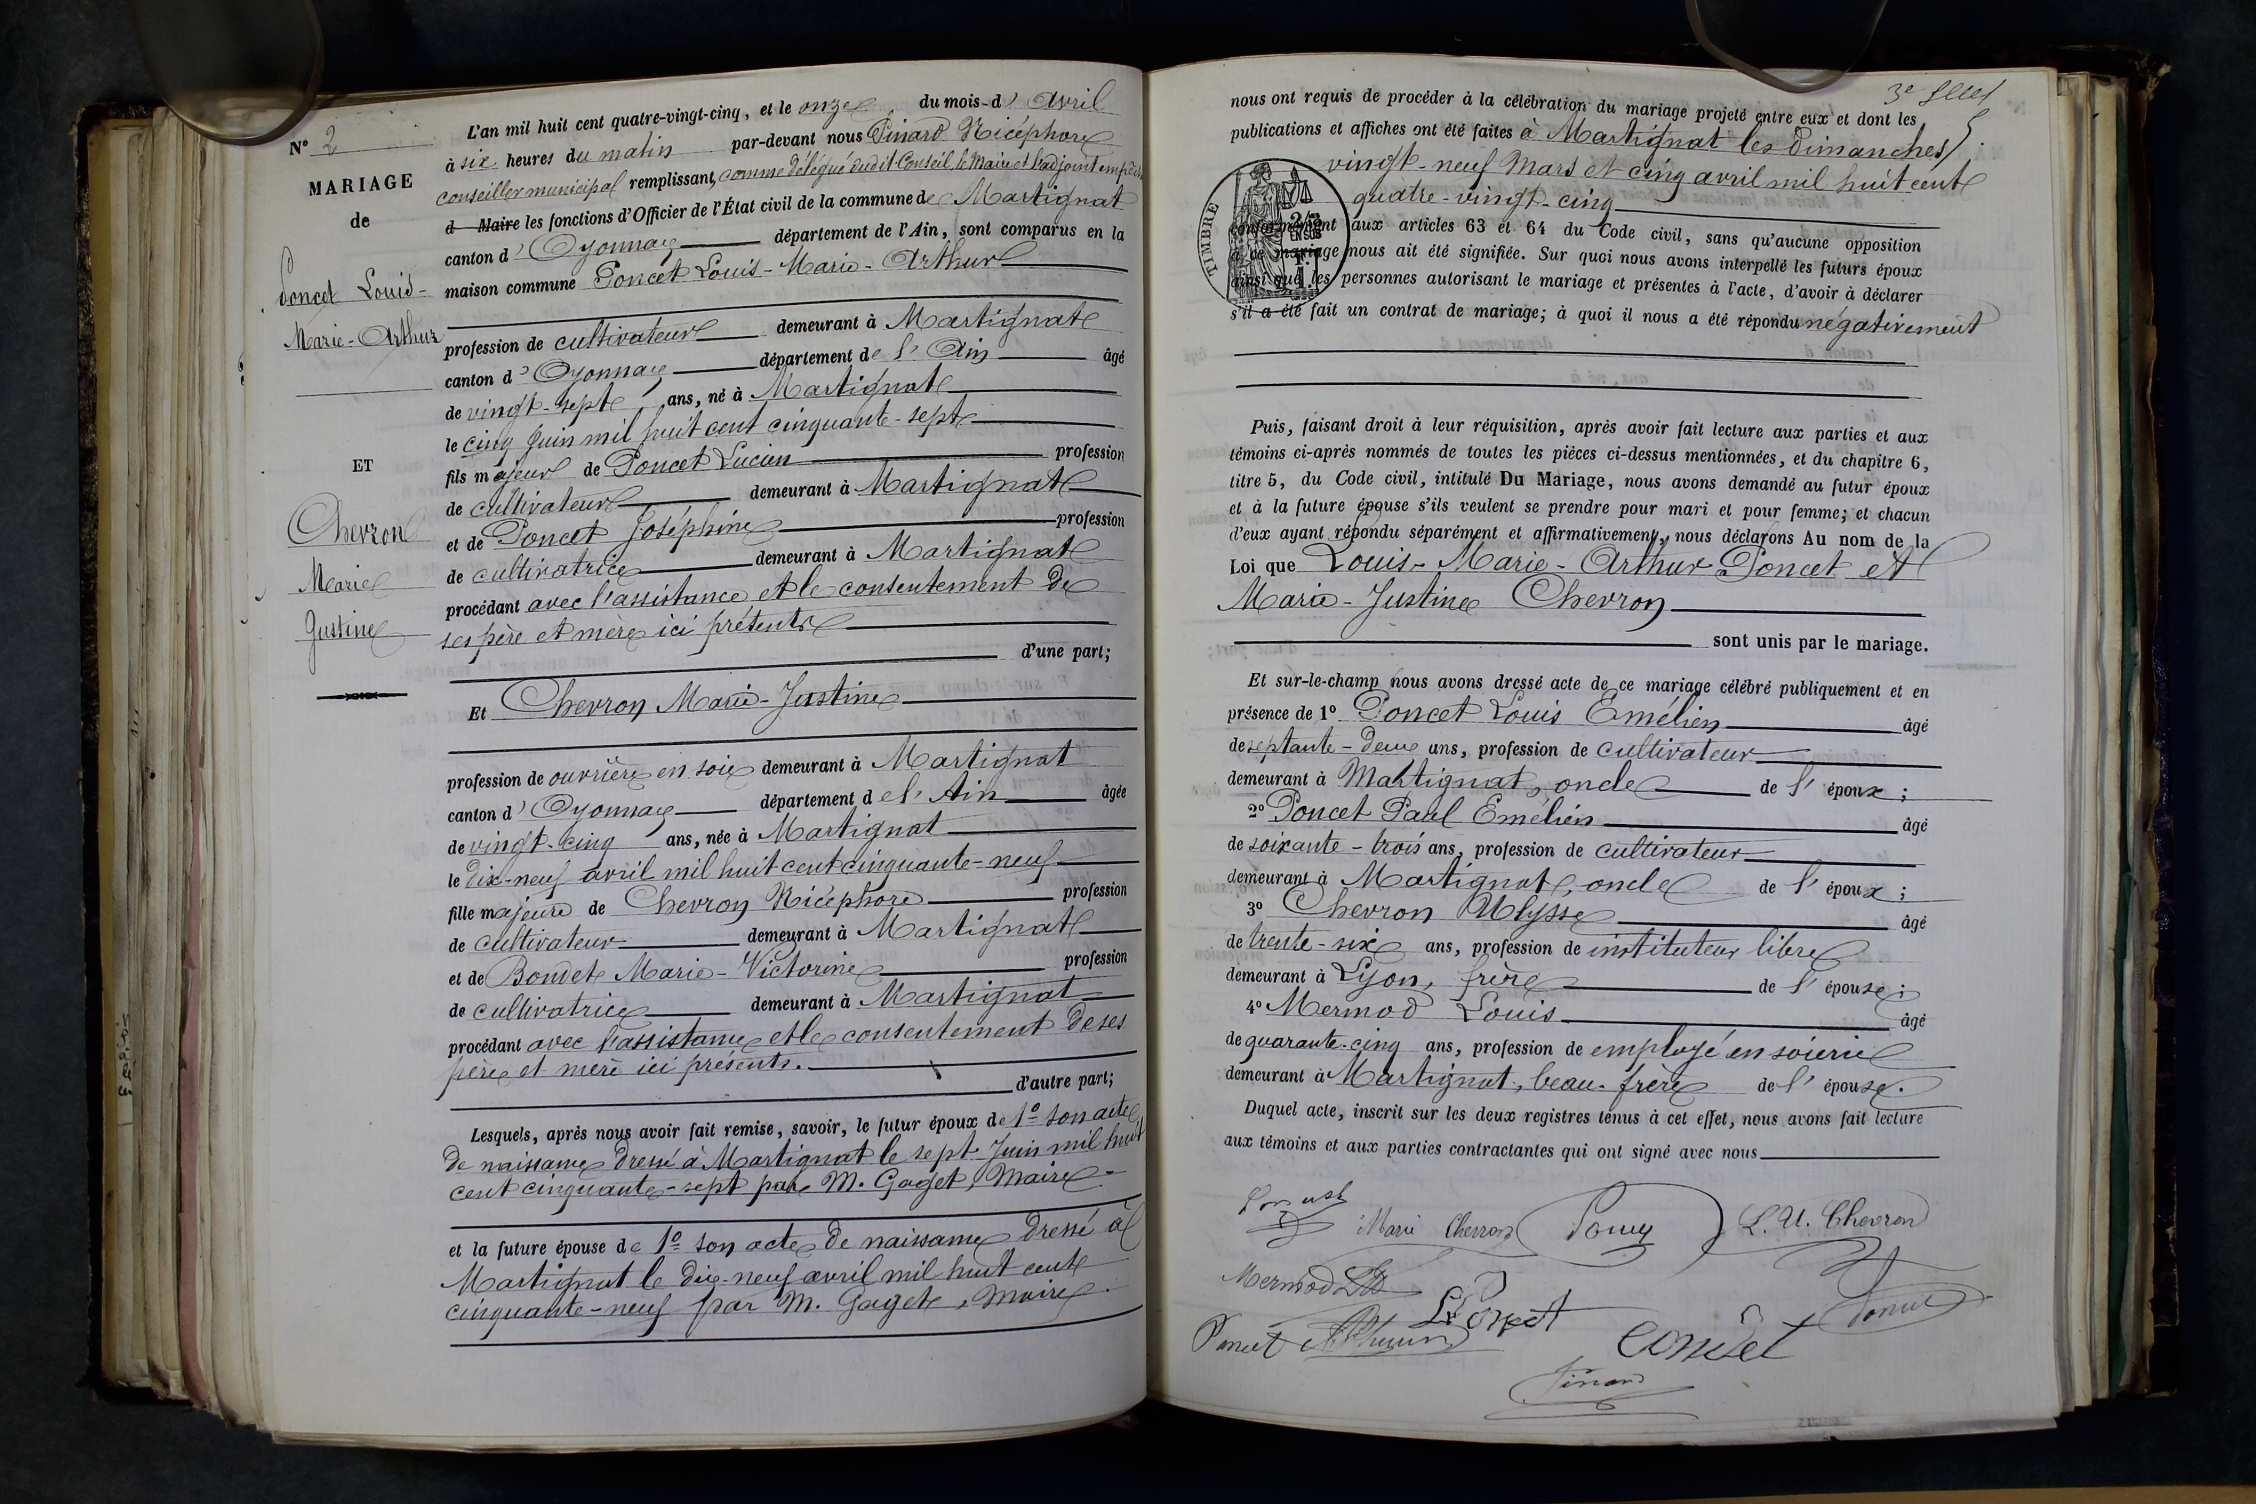 N° 2
MARIAGE
de
Poncet Louis-
Marie-Arthur
ET
Chevron
Marie
Justine
L'an mil huit cent quatre-vingt-cinq, et le onze du mois d' Avril
à six heures du matin par-devant nous Pinard Nicéphore
conseiller municipal remplissant, comme délégué dudit Conseil, le Maire et l'adjoint empêchés
d Maire les fonctions d'Officier de l'État civil de la commune de Martignat
canton d' Oyonnax département de l'Ain, sont comparus en la
maison commune Poncet Louis-Marie-Arthur
profession de cultivateur demeurant à Martignat
canton d' Oyonnax département de l'Ain âgé
de vingt-sept ans, né à Martignat
le cinq Juin mil huit cent cinquante-sept
fils majeur de Poncet Lucien profession
de cultivateur demeurant à Martignat
et de Poncet Joséphine profession
de cultivatrice demeurant à Martignat
procédant avec l'assistance et le consentement de
ses père et mère ici présents
d'une part;
Et Chevron Marie-Justine
profession de ouvrière en soie demeurant à Martignat
canton d' Oyonnax département de l'Ain âgée
de vingt-cinq ans, née à Martignat
le dix-neuf avril mil huit cent cinquante-neuf
fille majeure de Chevron Nicéphore profession
de cultivateur demeurant à Martignat
et de Bondet Marie-Victorine profession
de cultivatrice demeurant à Martignat
procédant avec l'assistance et le consentement de ses
père et mère ici présents.
d'autre part;
Lesquels, après nous avoir fait remise, savoir, le futur époux de 1° son acte
de naissance dressé à Martignat le sept Juin mil huit
cent cinquante-sept par M. Gaget, Maire
et la future épouse de 1° son acte de naissance dressé à
Martignat le dix-neuf avril mil huit cent
cinquante-neuf par M. Gaget, Maire.
3e
nous ont requis de procéder à la célébration du mariage projeté entre eux et dont les
publications et affiches ont été faites à Martignat les Dimanches
vingt-neuf Mars et cinq avril mil huit cent
quatre-vingt-cinq
TIMBRE
2/10 EN SUS
1 F.
conformément aux articles 63 et 64 du Code civil, sans qu'aucune opposition
à ce mariage nous ait été signifiée. Sur quoi nous avons interpellé les futurs époux
ainsi que les personnes autorisant le mariage et présentes à l'acte, d'avoir à déclarer
s'il a été fait un contrat de mariage; à quoi il nous a été répondu négativement
Puis, faisant droit à leur réquisition, après avoir fait lecture aux parties et aux
témoins ci-après nommés de toutes les pièces ci-dessus mentionnées, et du chapitre 6,
titre 5, du Code civil, intitulé Du Mariage, nous avons demandé au futur époux
et à la future épouse s'ils veulent se prendre pour mari et pour femme; et chacun
d'eux ayant répondu séparément et affirmativement, nous déclarons Au nom de la
Loi que Louis-Marie-Arthur Poncet et
Marie-Justine Chevron
sont unis par le mariage.
Et sur-le-champ nous avons dressé acte de ce mariage célébré publiquement et en
présence de 1° Poncet Louis Emélien âgé
de septante-deux ans, profession de cultivateur
demeurant à Martignat, oncle de l' époux;
2° Poncet Paul Emélien âgé
de soixante-trois ans, profession de cultivateur
demeurant à Martignat, oncle de l' époux;
3° Chevron Ulysse âgé
de trente-six ans, profession de instituteur libre
demeurant à Lyon, frère de l' épouse;
4° Mermod Louis âgé
de quarante-cinq ans, profession de employé en soierie
demeurant à Martignat, beau-frère de l' épouse.
Duquel acte, inscrit sur les deux registres tenus à cet effet, nous avons fait lecture
aux témoins et aux parties contractantes qui ont signé avec nous
Marie Chevron L. U. Chevron
Mermod
L Poncet
Poncet
Pinard